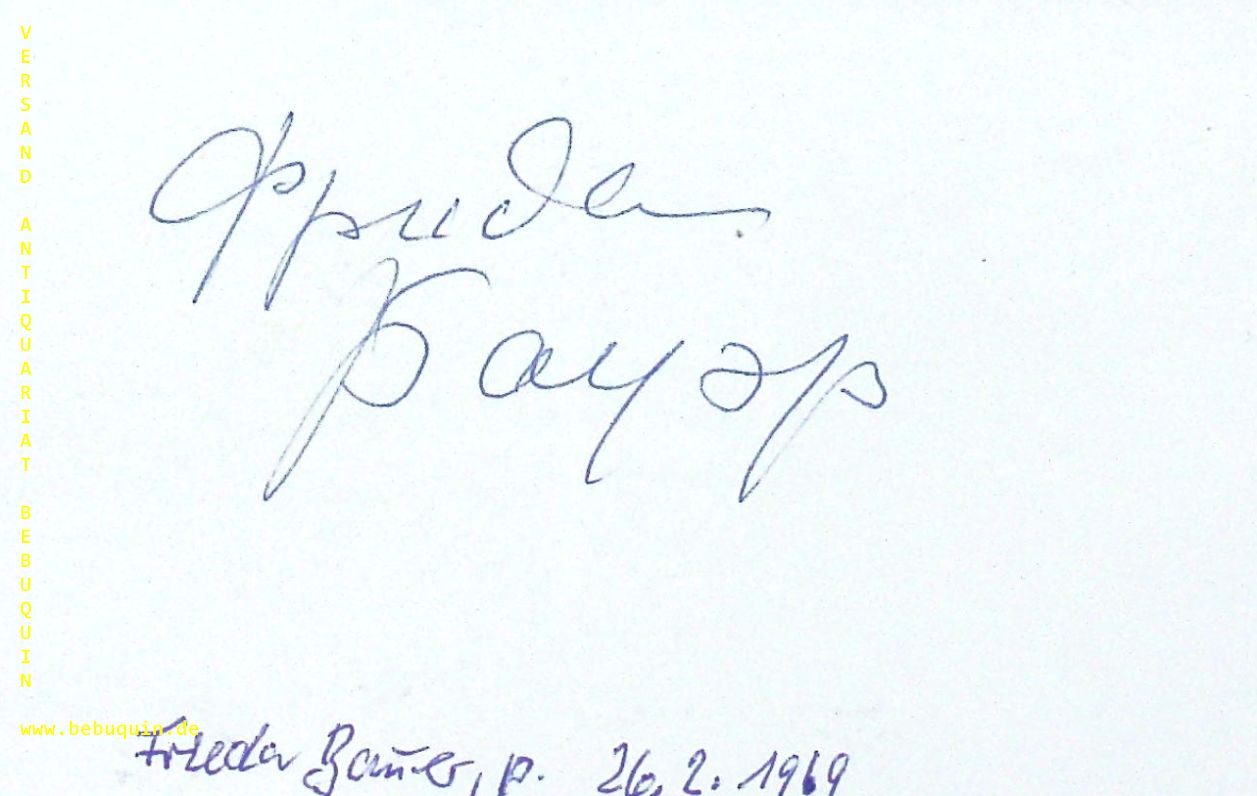 VERSAND ANTIQUARIAT BEBUQUIN
Фрида
Бауэр
www.bebuquin.de
Frieda Bauer, p. 26.2.1969